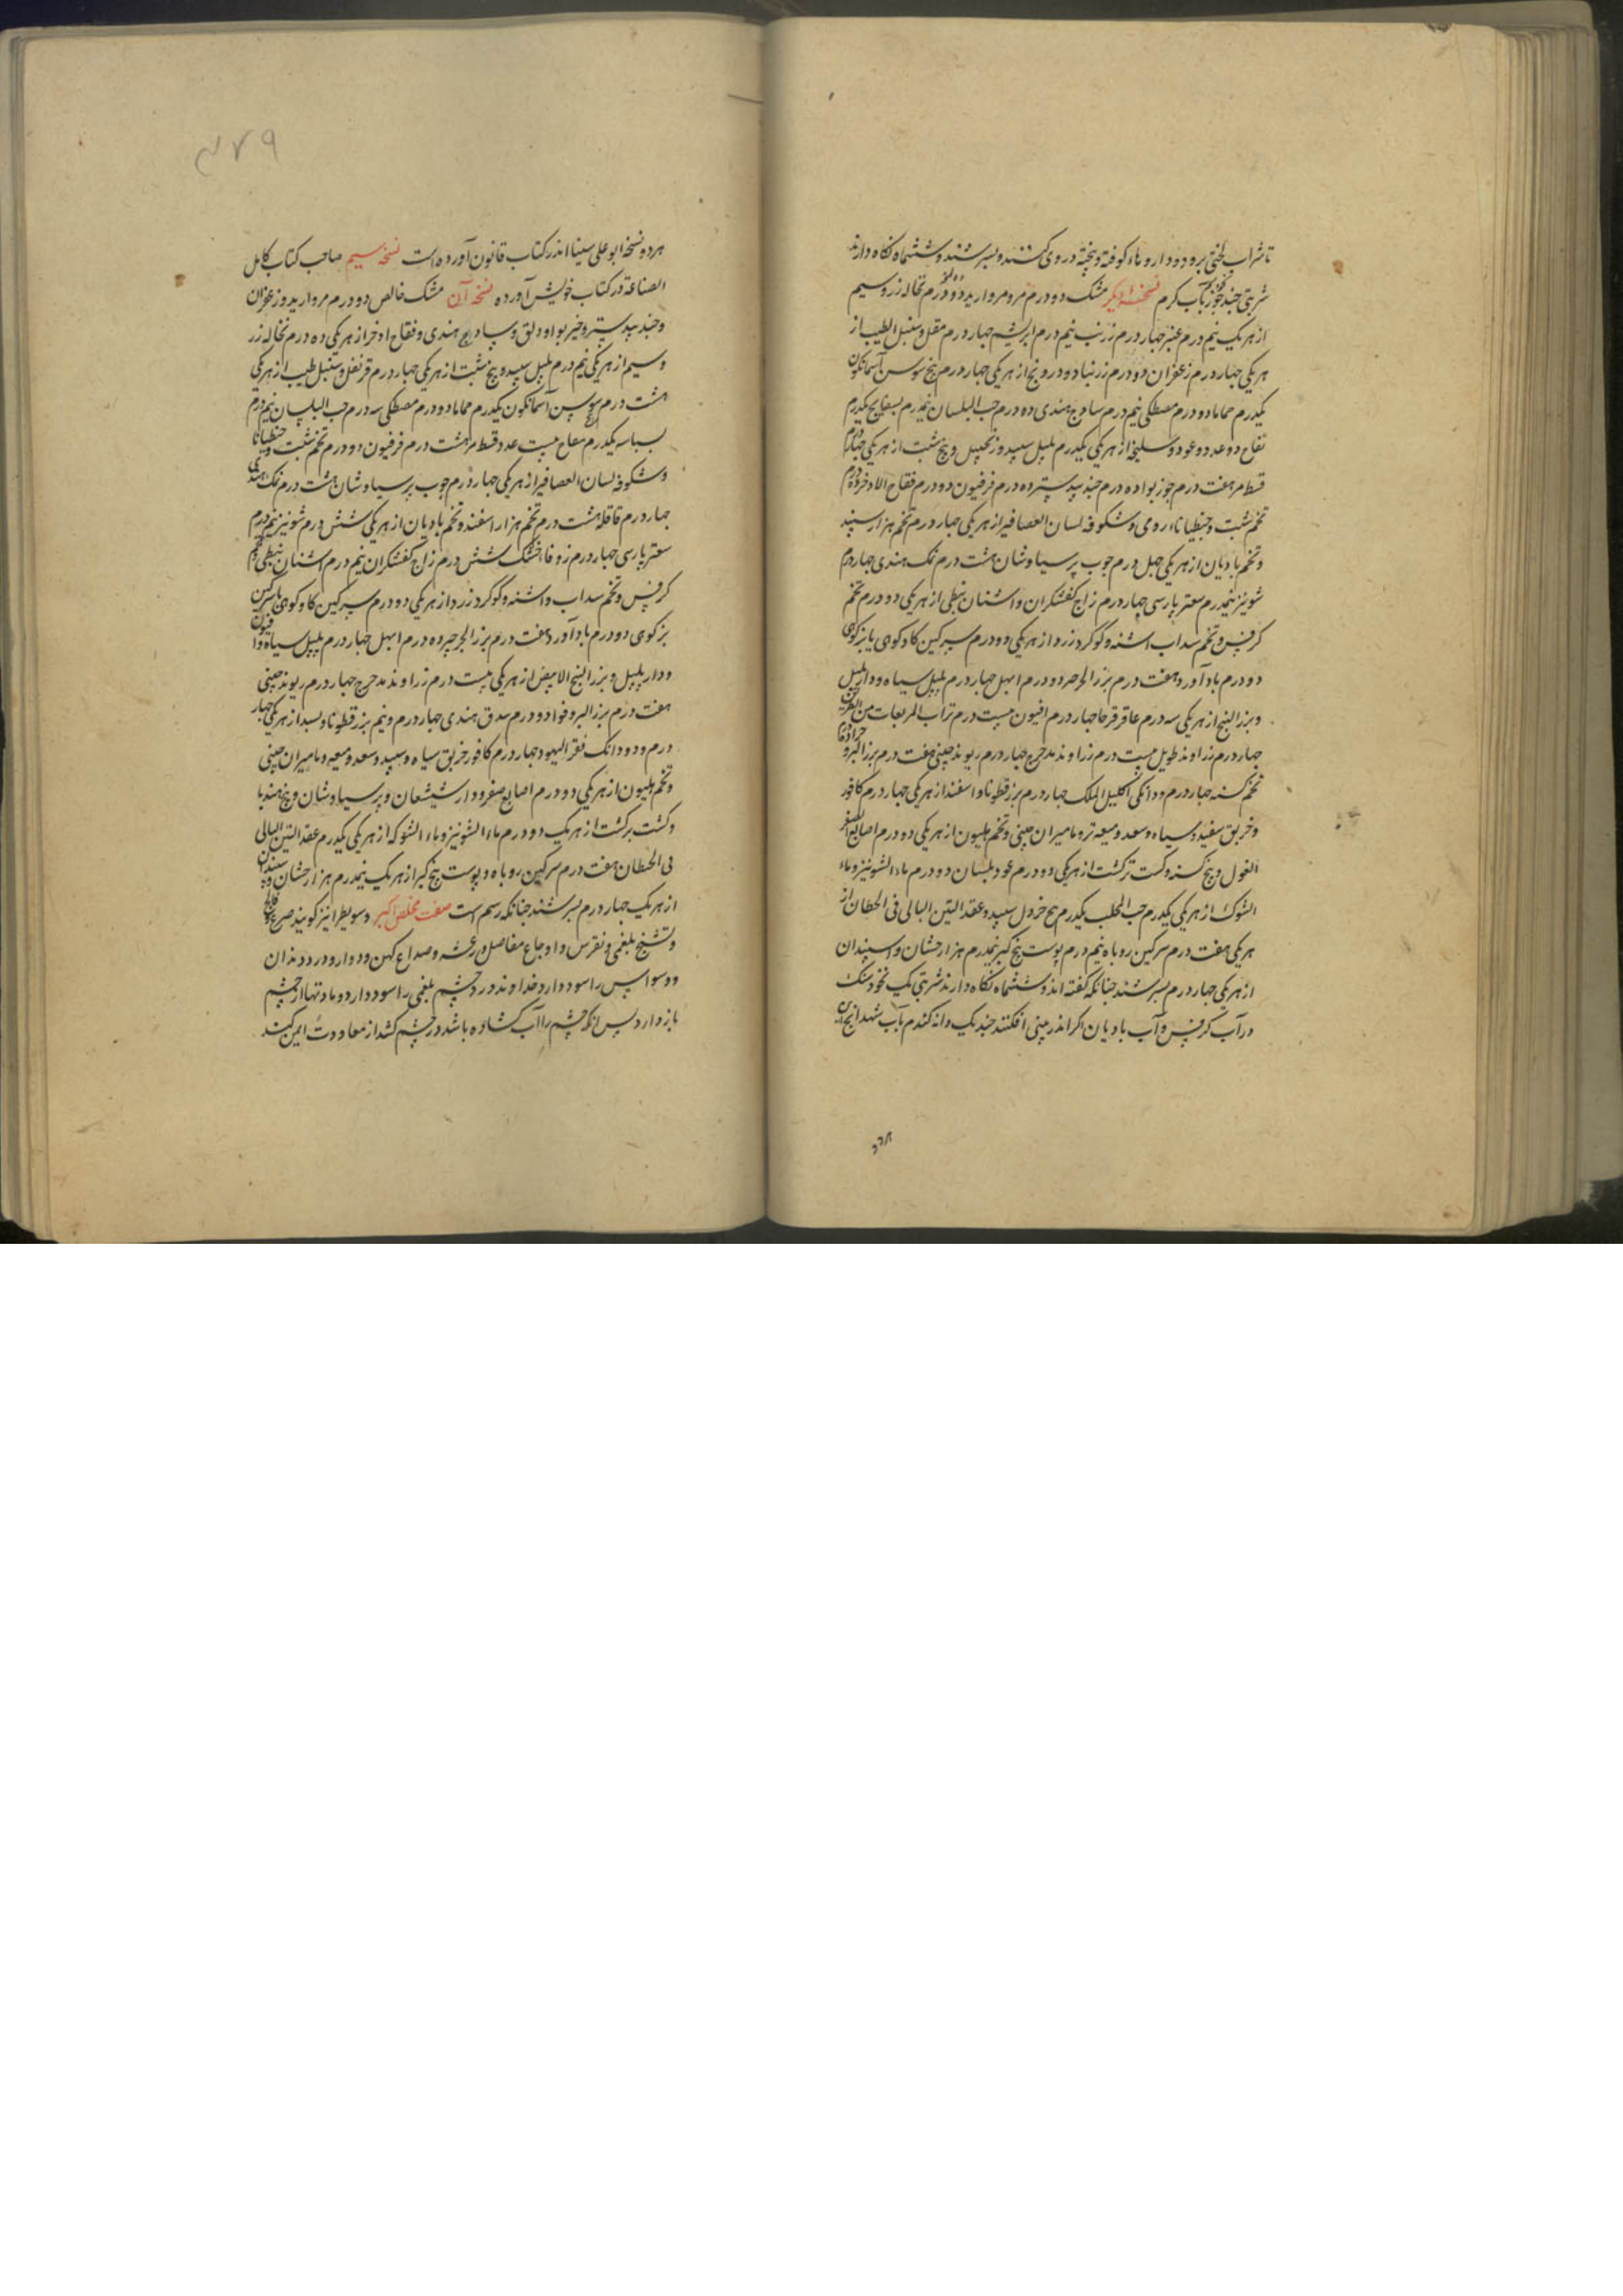 تا شراب لختی برود و داروهاء کوفته و بیخته در وی کنند و بسرشند و ششماه نگاه دارند
شربتی چند جوز بآب گرم نسخت دیگر مشک دو درم مرو مروارید دو درم نخاله زر و سیم
از هر یک نیم درم عنبر چهار درم زرنب نیم درم ابریشم چهار درم مقل و سنبل الطیب از
هر یکی چهار درم زعفران دو درم زرنباد و درونج از هر یکی چهار درم بیخ سوسن آسمانگون
یکدرم حماما دو درم مصطکی نیم درم ساذج هندی ده درم حب البلسان نیمدرم بسفایج یکدرم
تفاح دو عدد و عود و سلیخه از هر یکی یکدرم پلپل سپید و زنجبیل و بیخ شبت از هر یکی چهار درم
قسط مر هفت درم جوز بوا ده درم جند بیدستر ده درم فرفیون دو درم فقاح الاذخر ده درم
تخم شبت و جنطیانا رومی و شکوفه لسان العصافیر از هر یکی چهار درم تخم هزار سپند
و تخم بادیان از هر یکی چهل درم چوب پرسیاوشان هشت درم نمک هندی چهار درم
شونیز نیمدرم سعتر پارسی چهار درم زاج کفشگران و اشنان نبطی از هر یکی دو درم تخم
کرفس و تخم سداب اشنه و گوگرد زرد از هر یکی دو درم سرگین گاو کوهی یا بز کوهی
دو درم باد آورد هفت درم بزر الجرجیر دو درم ابهل چهار درم پلپل سیاه و دار پلپل
و بزر البنج از هر یکی سه درم عاقرقرحا چهار درم افیون بیست درم تراب المربعات من الطرق
چهار درم زراوند طویل بیست درم زراوند مدحرج چهار درم ریوند چینی هفت درم بزر
تخم کشنه چهار درم و دانگی اکلیل الملک چهار درم بزر قطونا و اسفند از هر یکی چهار درم کافور
و خربق سفید و سیاه و سعد و میعه تر و مامیران چینی و تخم هلیون از هر یکی دو درم اصابع الصفر
الغول و بیخ کسنه و کست ترکشت از هر یکی دو درم عود بلسان دو درم ماء الشونیز و ماء
الشوک از هر یکی یکدرم حب المحلب یکدرم بیخ خردل سپید و عقد التین البالی فی الحطان از
هر یکی هفت درم سرگین روباه نیم درم پوست بیخ کبر نیمدرم هزار جشان و اسپندان
از هر یکی چهار درم بسرشند چنانکه گفته اند و ششماه نگاه دارند شربتی یک نخود سنگ
در آب کرفس و آب بادیان اگر اندر بینی افکنند چند یک دانه گندم بآب شهدانج
هر دو نسخه ابو علی سینا اندر کتاب قانون آورده است نسخه سیم صاحب کتاب کامل
الصناعة در کتاب خویش آورده نسخه آن مشک خالص دو درم مروارید و زعفران
و جند بیدستر و خیر بوا و دلق و ساذج هندی و فقاح اذخر از هر یکی ده درم نخاله زر
و سیم از هر یکی نیم درم پلپل سپید و بیخ شبت از هر یکی چهار درم قرنفل و سنبل طیب از هر یکی
هشت درم سوسن آسمانگون یکدرم حماما دو درم مصطکی سه درم حب البلسان نیم درم
بسباسه یکدرم تفاح بیست عدد قسط مر هشت درم فرفیون دو درم تخم شبت و جنطیانا
و شکوفه لسان العصافیر از هر یکی چهار درم چوب پرسیاوشان هشت درم نمک هندی
چهار درم قاقله هشت درم تخم هزار اسفند و تخم بادیان از هر یکی شش درم شونیز نیم درم
سعتر پارسی چهار درم زوفا خشک شش درم زاج کفشگران نیم درم اشنان نبطی
کرفس و تخم سداب و اشنه و گوگرد زرد از هر یکی دو درم سرگین گاو کوهی یا سرگین
بز کوهی دو درم باد آورد هفت درم بزر الجرجیر ده درم ابهل چهار درم پلپل سیاه و افیون
و دار پلپل و بزر البنج الابیض از هر یکی بیست درم زراوند مدحرج چهار درم ریوند چینی
هفت درم بزر البر و فوا دو درم بندق هندی چهار درم و نیم بزر قطونا و بسد از هر یکی چهار
درم و دو دانگ فقر الیهود چهار درم کافور خربق سیاه و سپید و سعد و میعه و مامیران چینی
و تخم هلیون از هر یکی دو درم اصابع صفر و دار شیشعان و پرسیاوشان و بیخ هندبا
و کشت برکشت از هر یک دو درم ماء الشونیز و ماء الشوکه از هر یکی یکدرم عقد التین البالی
فی الحطان هفت درم سرگین روباه و پوست بیخ کبر از هر یک نیمدرم هزار جشان و سپندان
از هر یک چهار درم بسرشند چنانکه رسم است صفت مخلص اکبر و سوطیرا نیز گویند صرع و فالج
و تشنج بلغمی و نقرس و اوجاع مفاصل و رعشه و صداع کهن و دوار و درد دندان
و وسواس را سود دارد خداوند درد چشم بلغمی را سود دارد و مادتها از چشم
باز دارد پس انکه چشم را آب گشاده باشد در چشم کشد از معاودت ایمن کند